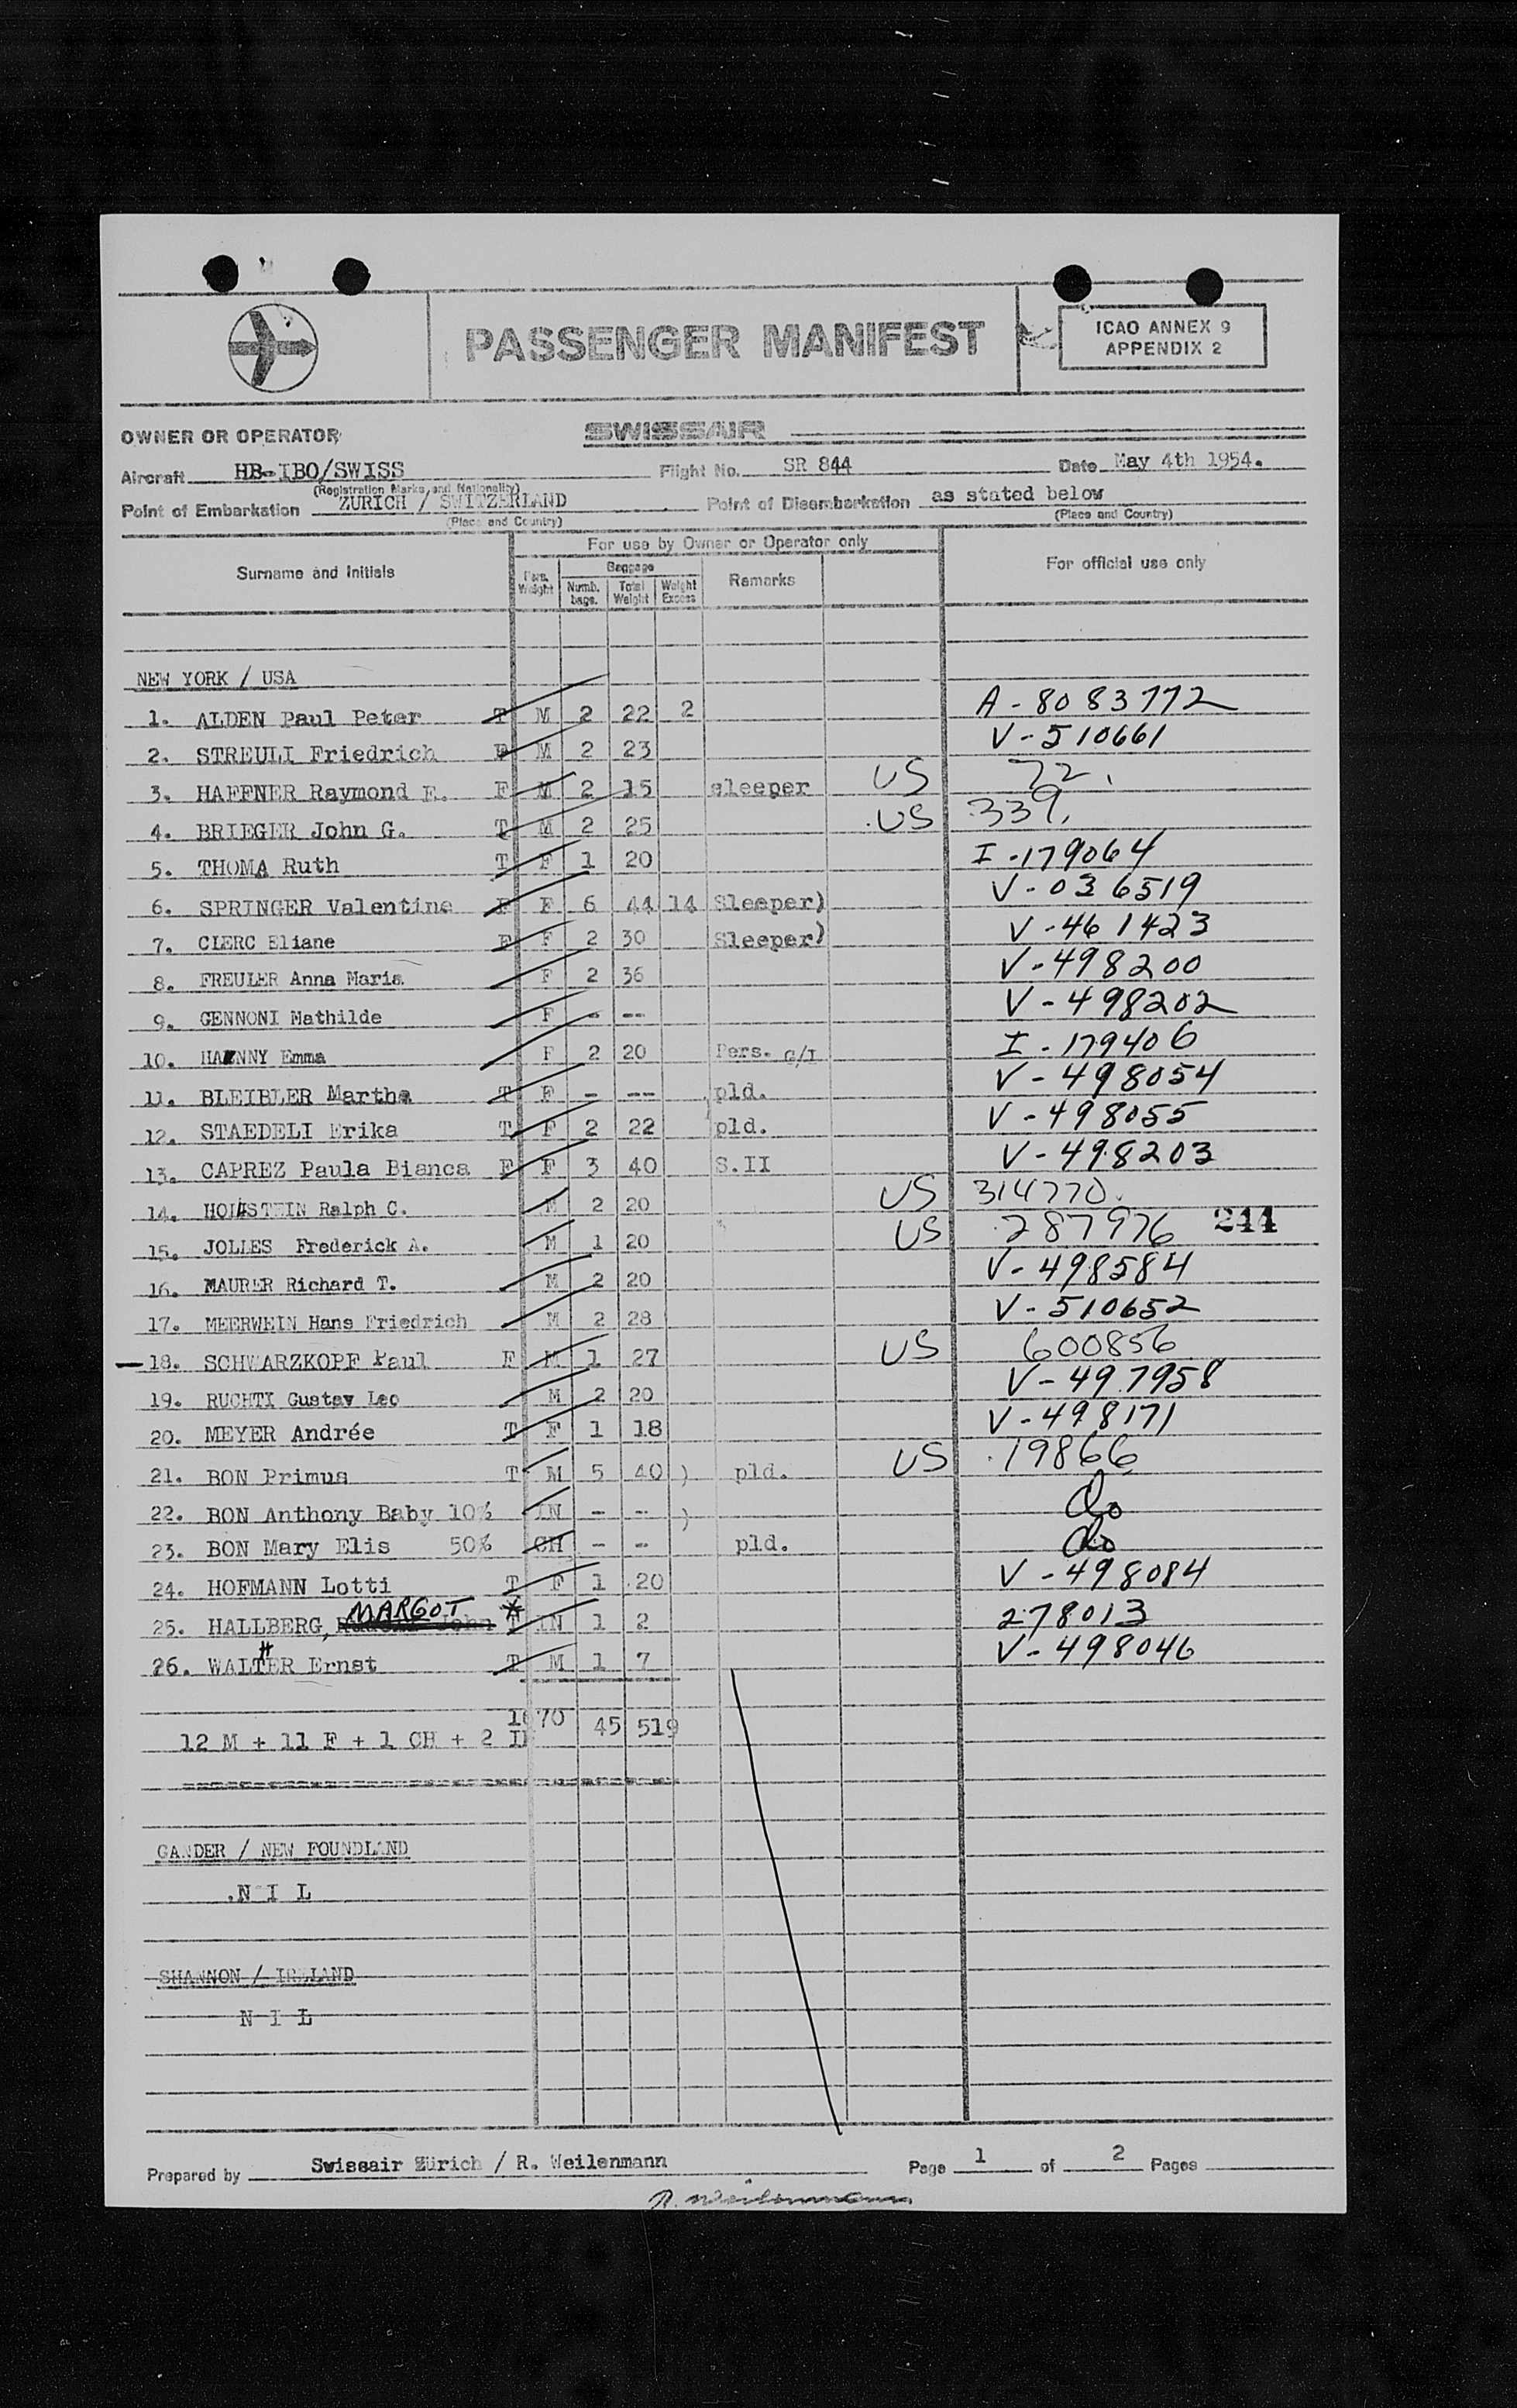 PASSENGER MANIFEST
ICAO ANNEX 9
APPENDIX 2
OWNER OR OPERATOR SWISSAIR
Aircraft HB-IBO/SWISS Flight No. SR 844 Date May 4th 1954.
(Registration Marks and Nationality)
Point of Embarkation ZURICH / SWITZERLAND Point of Disembarkation as stated below
(Place and Country) (Place and Country)
For use by Owner or Operator only
Surname and Initials Pers. Weight Baggage Numb. bags. Total Weight Weight Excess Remarks For official use only
NEW YORK / USA
1. ALDEN Paul Peter T M 2 22 2 A-8083772
2. STREULI Friedrich F M 2 23 V-510661
3. HAFFNER Raymond E. F M 2 15 sleeper US 72.
4. BRIEGER John G. T M 2 25 US 339.
5. THOMA Ruth T F 1 20 I-179064
6. SPRINGER Valentine F F 6 44 14 Sleeper) V-036519
7. CLERC Eliane F F 2 30 Sleeper) V-461423
8. FREULER Anna Maria F 2 36 V-498200
9. GENNONI Mathilde F - -- V-498202
10. HAENNY Emma F 2 20 Pers. G/I I-179406
11. BLEIBLER Martha T F - -- pld. V-498054
12. STAEDELI Erika T F 2 22 pld. V-498055
13. CAPREZ Paula Bianca F F 3 40 S.II V-498203
14. HOLSTEIN Ralph C. M 2 20 US 314770.
15. JOLLES Frederick A. M 1 20 US 287976 244
16. MAURER Richard T. M 2 20 V-498584
17. MEERWEIN Hans Friedrich M 2 28 V-510652
18. SCHWARZKOPF Paul F M 1 27 US 600856
19. RUCHTI Gustav Leo M 2 20 V-497958
20. MEYER Andrée T F 1 18 V-498171
21. BON Primus T M 5 40 ) pld. US 19866
22. BON Anthony Baby 10% IN - -- ) do
23. BON Mary Elis 50% CH - - pld. do
24. HOFMANN Lotti T F 1 20 V-498084
25. HALLBERG, MARGOT * T IN 1 2 278013
26. WALTHER Ernst T M 1 7 V-498046
12 M + 11 F + 1 CH + 2 IN 1670 45 519
GANDER / NEW FOUNDLAND
N I L
SHANNON / IRELAND
N I L
Prepared by Swissair Zürich / R. Weilenmann Page 1 of 2 Pages
R. Weilenmann